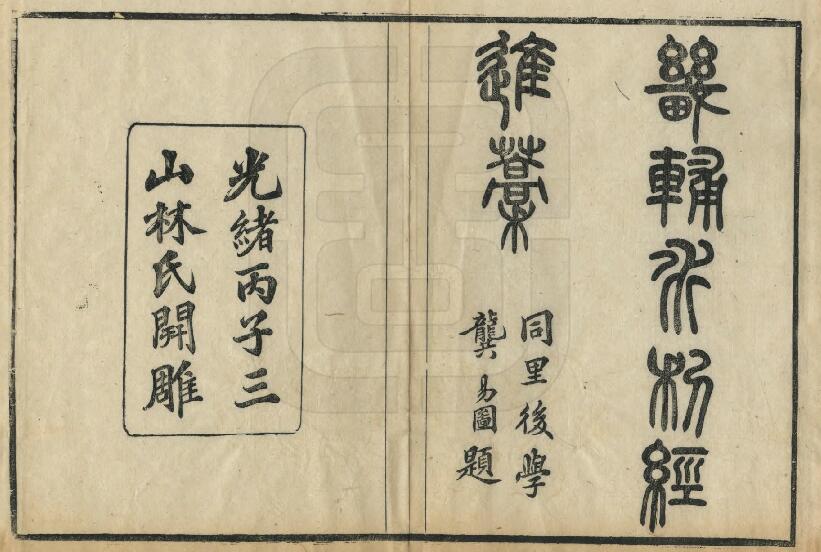 畿輔水利經
進藁
同里後學
龔易圖題
光緒丙子三
山林氏開雕